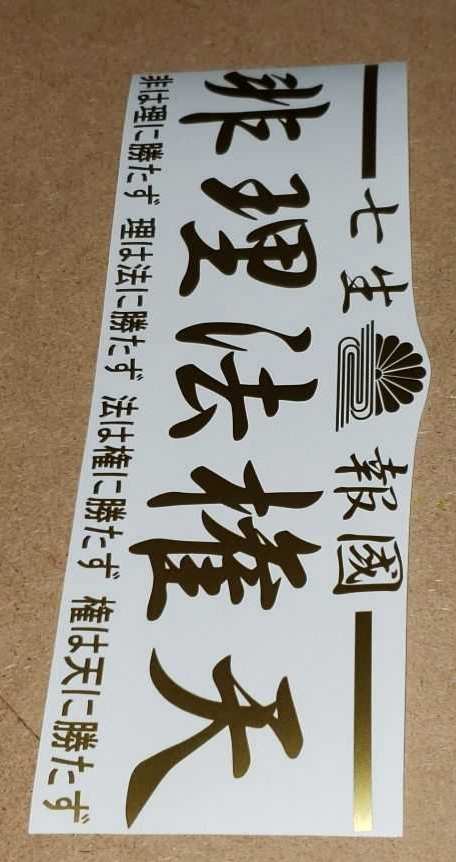 七生報國
非理法権天
非は理に勝たず 理は法に勝たず 法は権に勝たず 権は天に勝たず